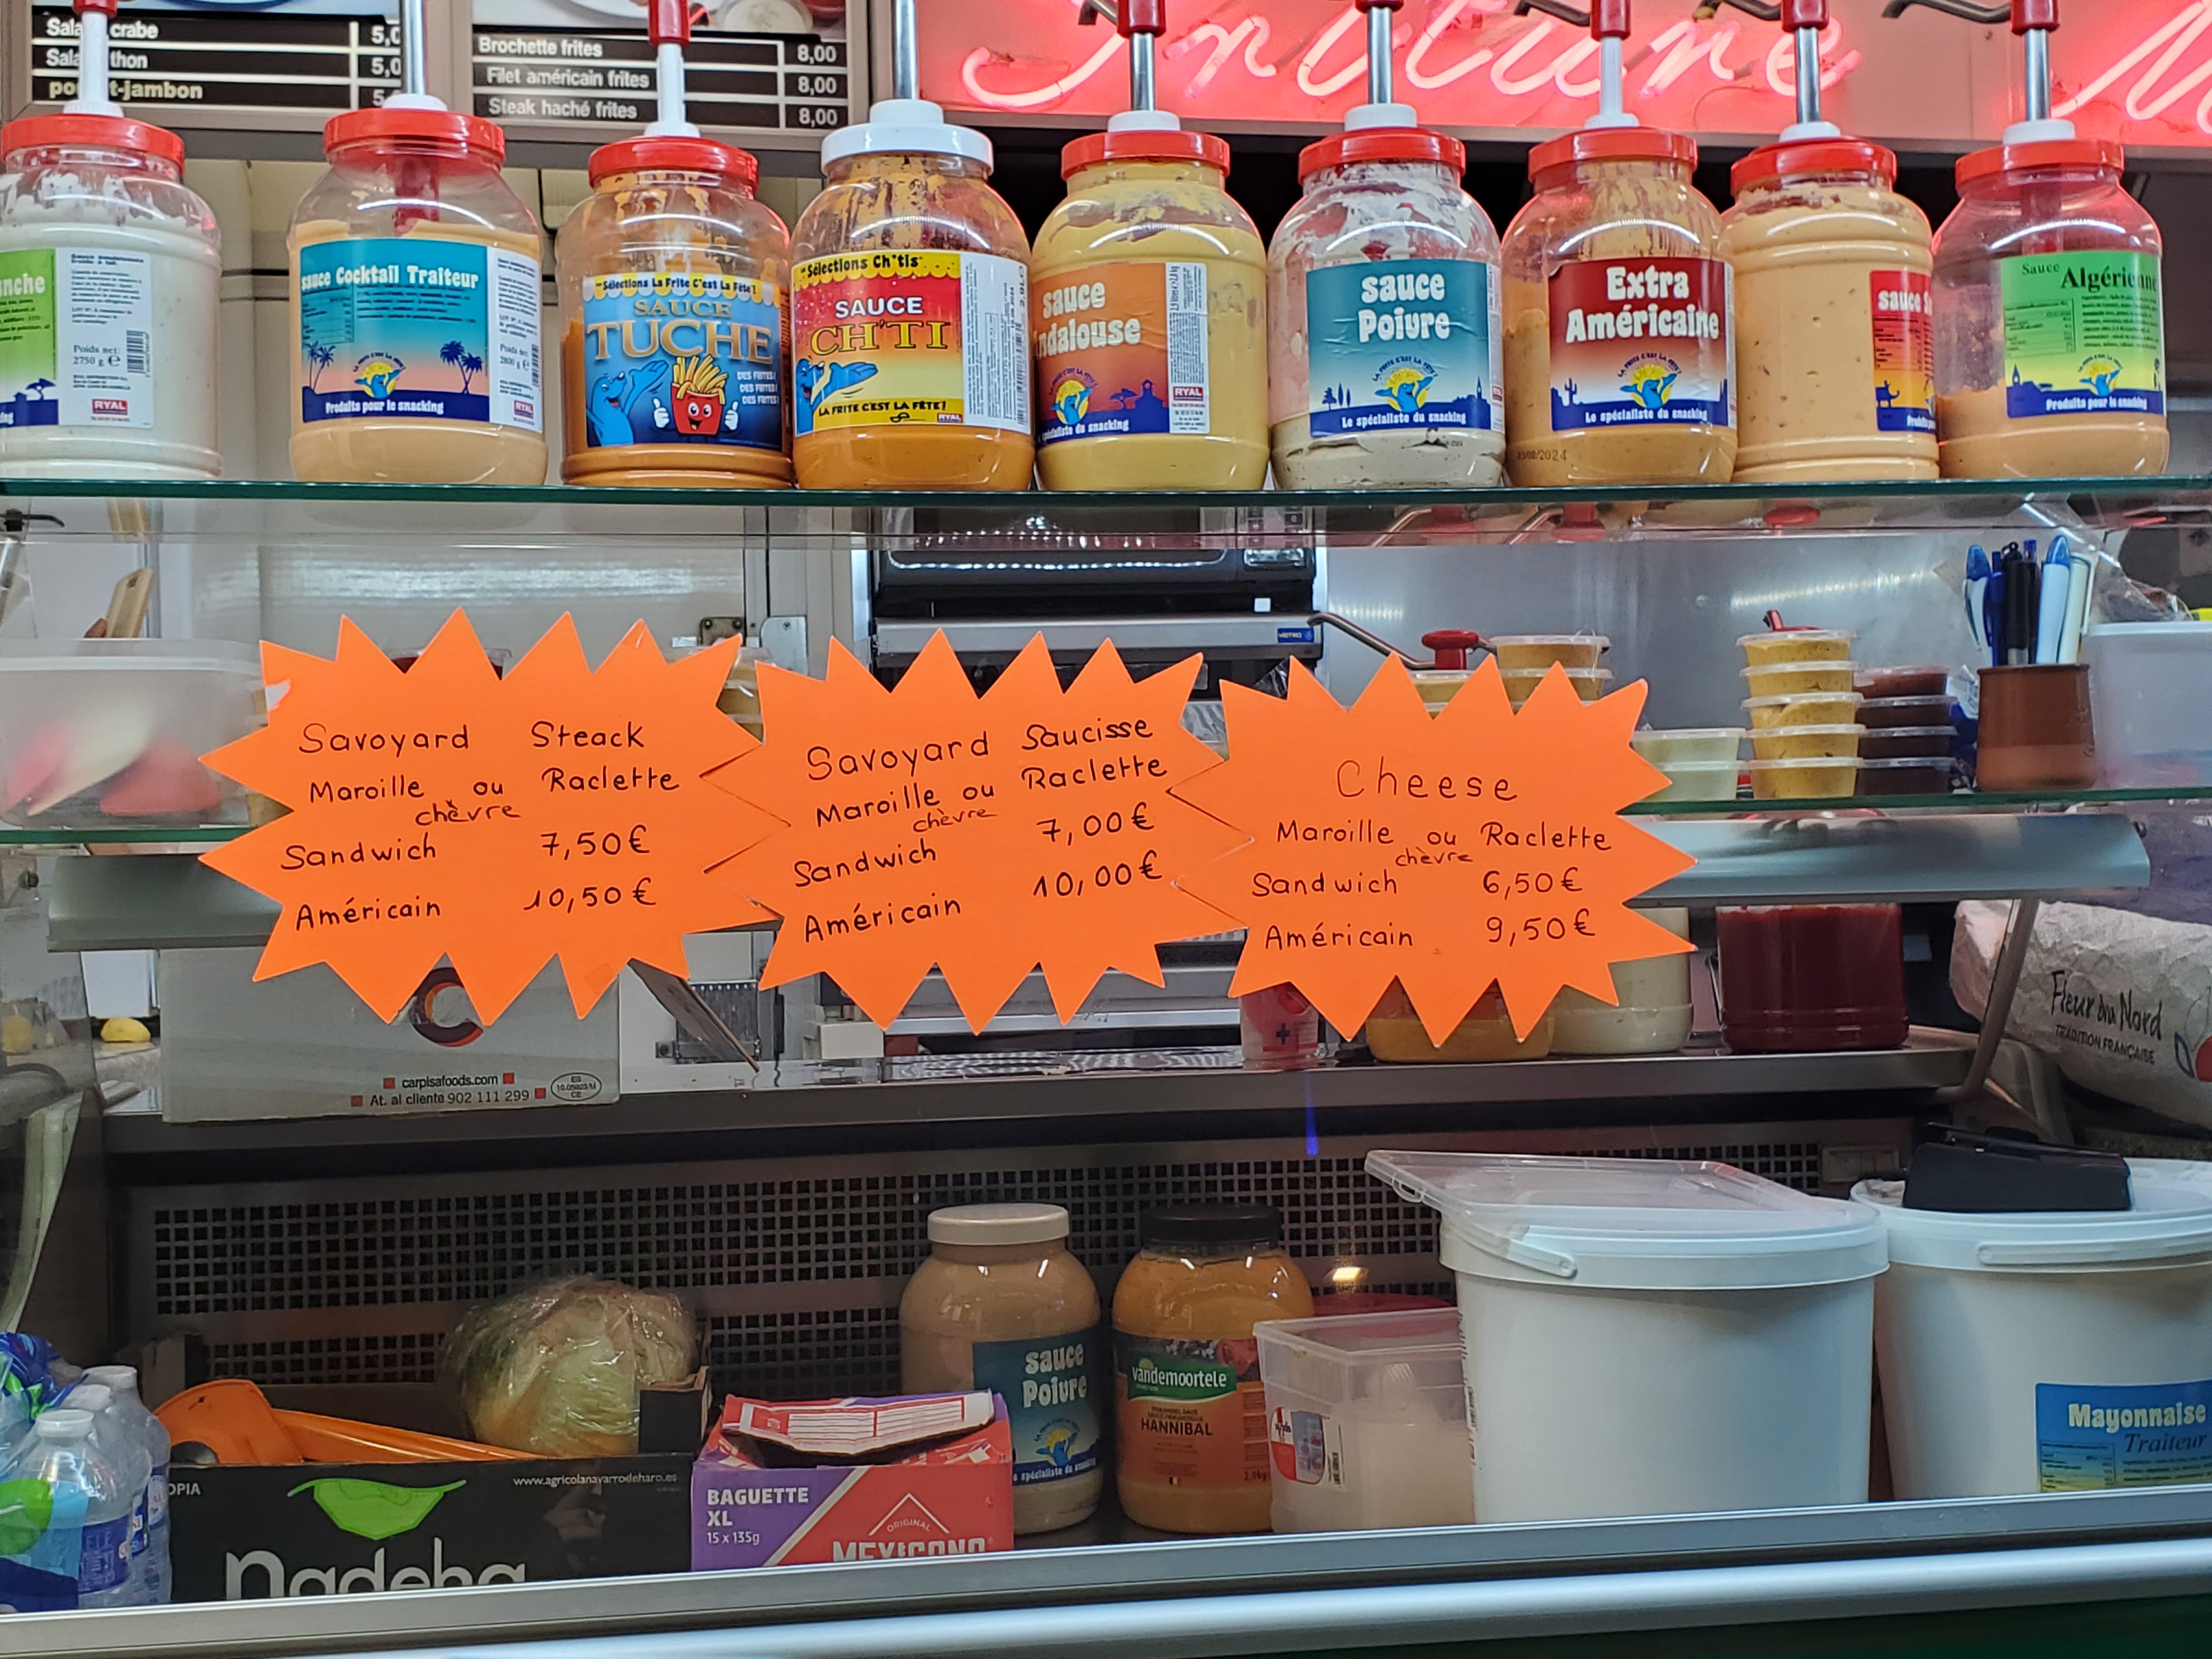 crabe 5,0
thon 5,0
t-jambon
Brochette frites 8,00
Filet américain frites 8,00
Steak haché frites 8,00
Friture
Poids net:
2750 g e
RYAL
sauce Cocktail Traiteur
Produits pour le snacking
Poids net:
2800 g e
RYAL
Sélections La Frite C'est La Fête !
SAUCE
TUCHE
DES FRITES !
DES FRITES !
DES FRITES !
Sélections Ch'tis
SAUCE
CH'TI
LA FRITE C'EST LA FÊTE !
RYAL
sauce
ndalouse
RYAL
spécialiste du snacking
sauce
Poivre
LA FRITE C'EST LA FÊTE !
Le spécialiste du snacking
Extra
Américaine
LA FRITE C'EST LA FÊTE !
Le spécialiste du snacking
sauce
Sauce Algérienne
Produits pour le snacking
METRO
Savoyard Steack
Maroille ou Raclette
chèvre
Sandwich 7,50€
Américain 10,50€
Savoyard Saucisse
Maroille ou Raclette
chèvre
Sandwich 7,00€
Américain 10,00€
Cheese
Maroille ou Raclette
chèvre
Sandwich 6,50€
Américain 9,50€
Fleur du Nord
TRADITION FRANÇAISE
carpisafoods.com
At. al cliente 902 111 299
sauce
Poivre
spécialiste du snacking
vandemoortele
HANNIBAL
Mayonnaise
Traiteur
www.agricolanavarrodeharo.es
nadeha
BAGUETTE
XL
15 x 135g
ORIGINAL
MEXICANO